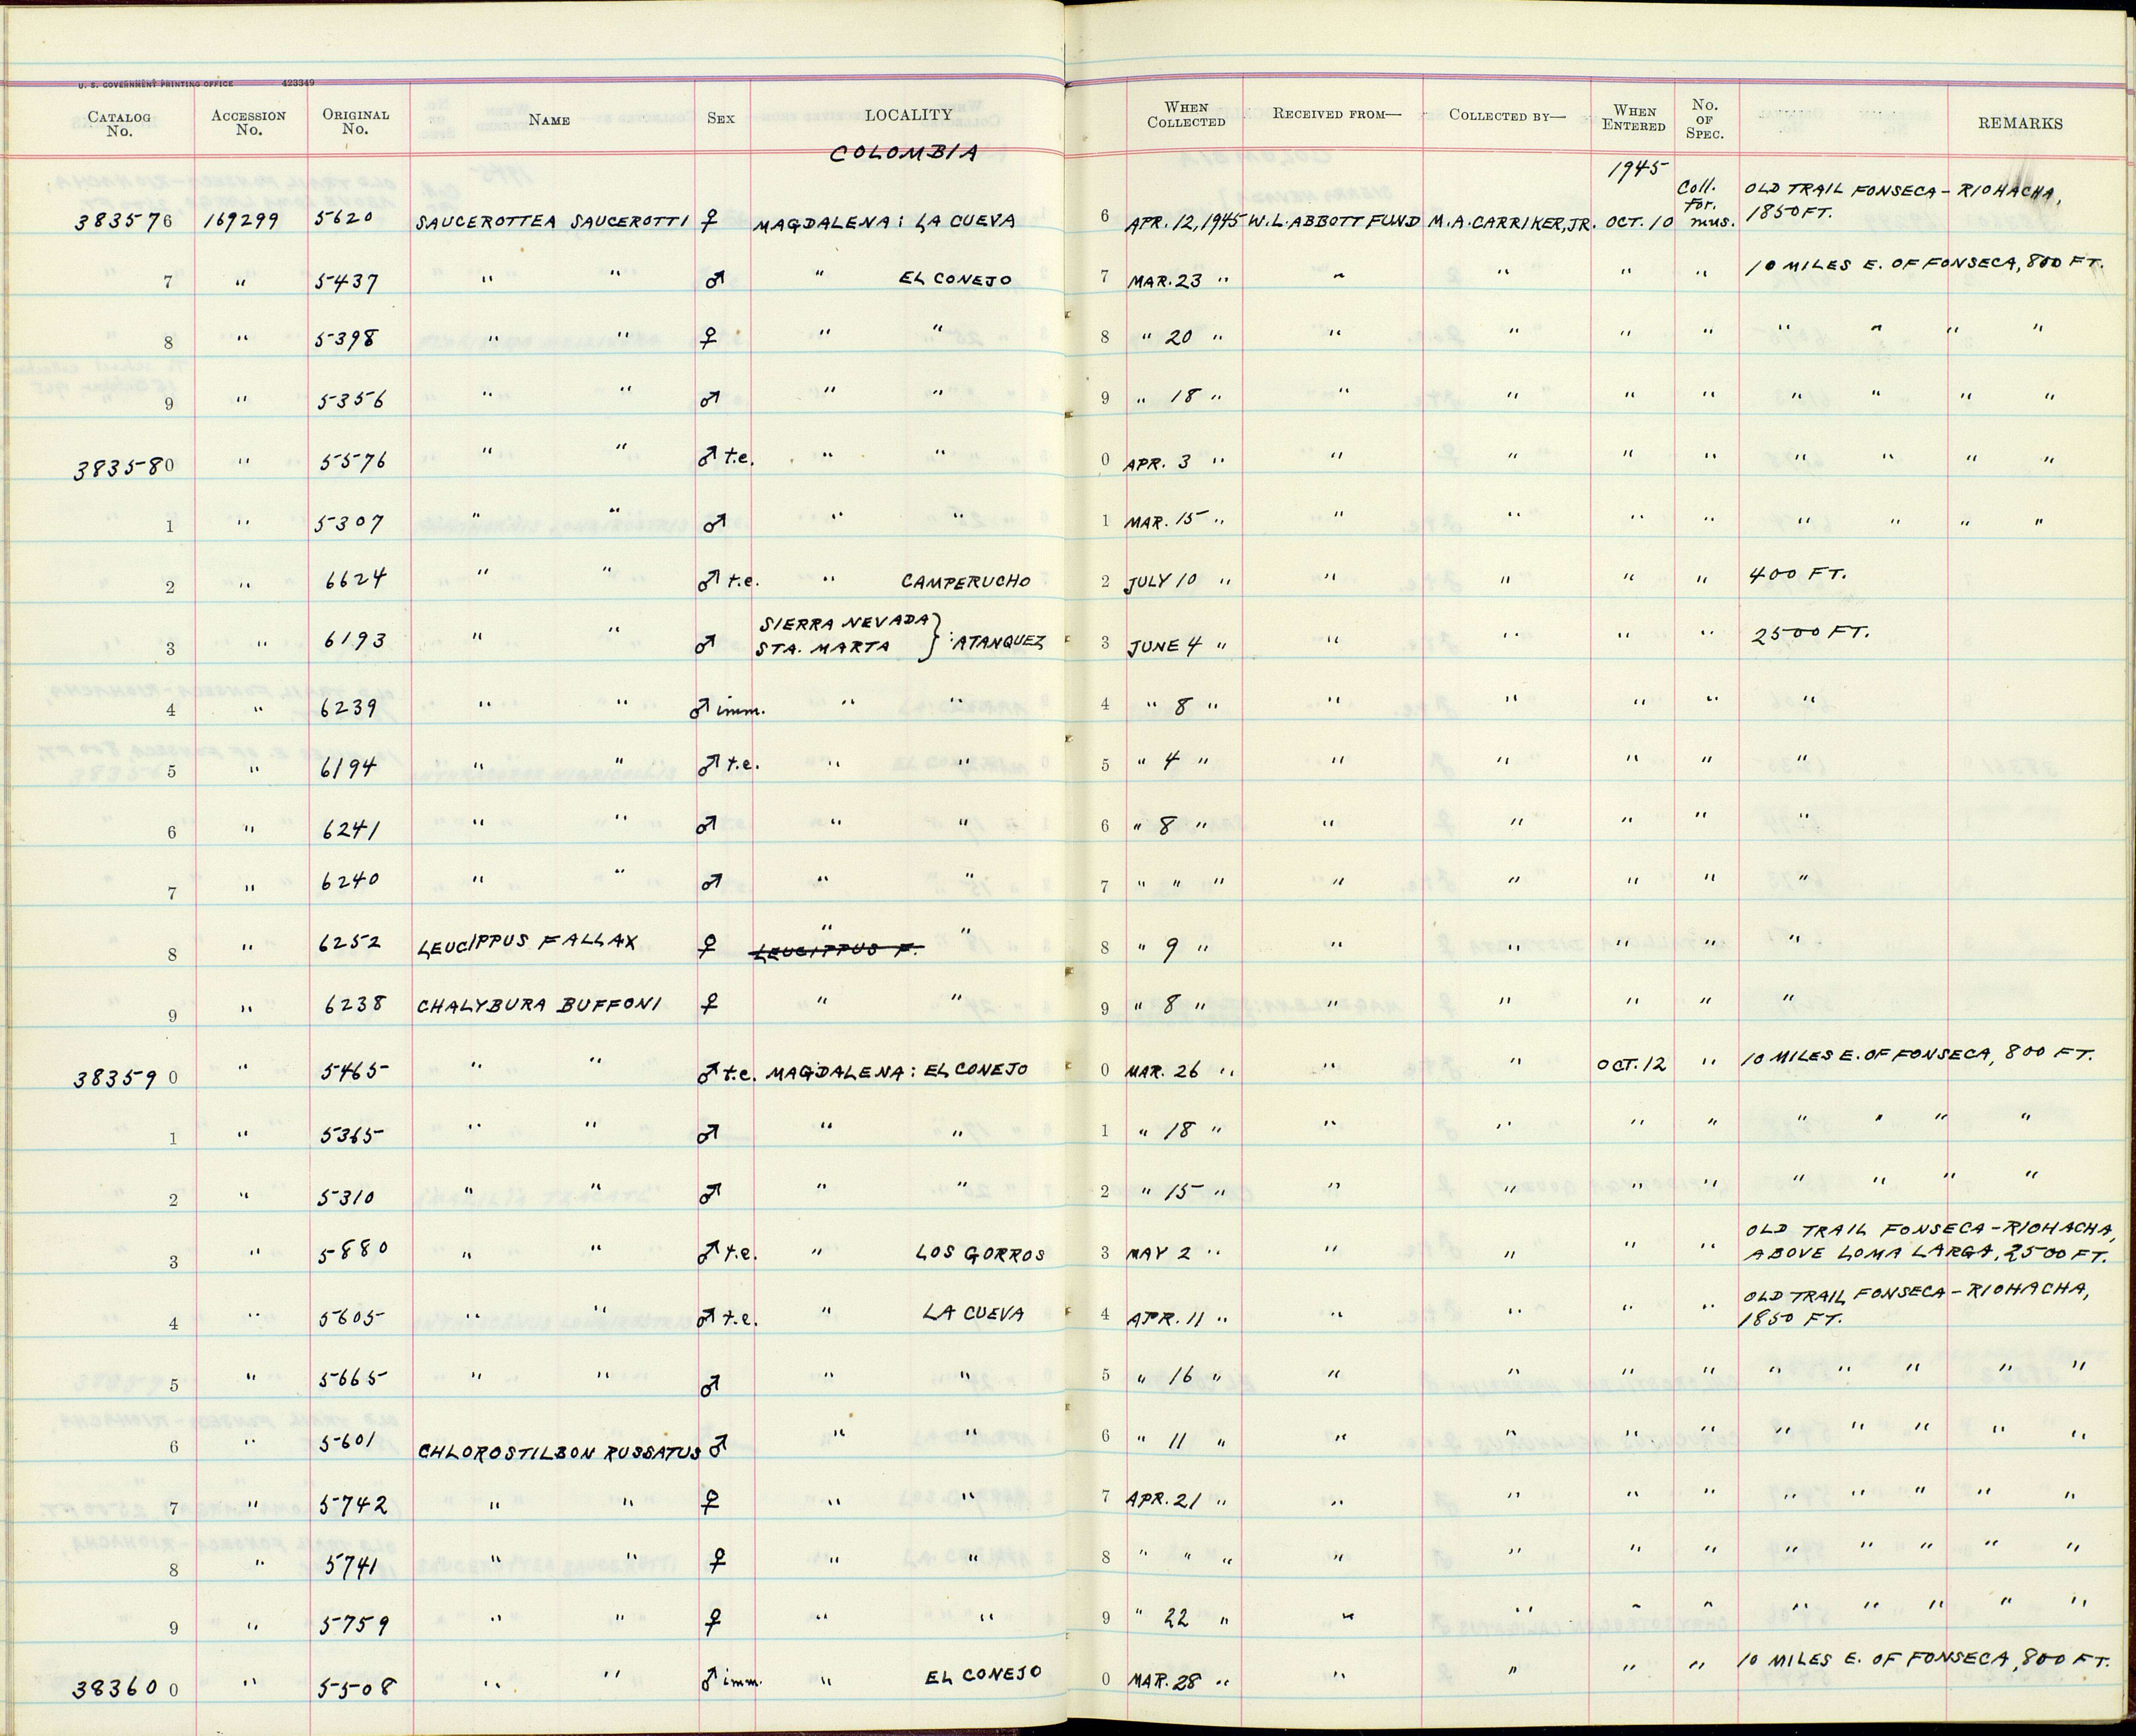 U. S. GOVERNMENT PRINTING OFFICE 423349
CATALOG No. ACCESSION No. ORIGINAL No. NAME SEX LOCALITY WHEN COLLECTED RECEIVED FROM— COLLECTED BY— WHEN ENTERED No. OF SPEC. REMARKS
COLOMBIA 1945
383576 169299 5620 SAUCEROTTEA SAUCEROTTI ♀ MAGDALENA: LA CUEVA 6 APR. 12, 1945 W. L. ABBOTT FUND M. A. CARRIKER, JR. OCT. 10 Coll. for. mus. OLD TRAIL FONSECA - RIOHACHA, 1850 FT.
7 " 5437 " " ♂ " EL CONEJO 7 MAR. 23 " " " " " 10 MILES E. OF FONSECA, 800 FT.
8 " 5398 " " ♀ " " 8 " 20 " " " " " " " " "
9 " 5356 " " ♂ " " 9 " 18 " " " " " " " " "
383580 " 5576 " " ♂ t.e. " " 0 APR. 3 " " " " " " " " "
1 " 5307 " " ♂ " " 1 MAR. 15 " " " " " " " " "
2 " 6624 " " ♂ t.e. " CAMPERUCHO 2 JULY 10 " " " " " 400 FT.
3 " 6193 " " ♂ SIERRA NEVADA STA. MARTA } : ATANQUEZ 3 JUNE 4 " " " " " 2500 FT.
4 " 6239 " " ♂ imm. " " 4 " 8 " " " " " "
5 " 6194 " " ♂ t.e. " " 5 " 4 " " " " " "
6 " 6241 " " ♂ " " 6 " 8 " " " " " "
7 " 6240 " " ♂ " " 7 " " " " " " " "
8 " 6252 LEUCIPPUS FALLAX ♀ " " LEUCIPPUS F. 8 " 9 " " " " " "
9 " 6238 CHALYBURA BUFFONI ♀ " " 9 " 8 " " " " " "
383590 " 5465 " " ♂ t.e. MAGDALENA: EL CONEJO 0 MAR. 26 " " " OCT. 12 " 10 MILES E. OF FONSECA, 800 FT.
1 " 5365 " " ♂ " " 1 " 18 " " " " " " " " "
2 " 5310 " " ♂ " " 2 " 15 " " " " " " " " "
3 " 5880 " " ♂ t.e. " LOS GORROS 3 MAY 2 " " " " " OLD TRAIL FONSECA - RIOHACHA, ABOVE LOMA LARGA, 2500 FT.
4 " 5605 " " ♂ t.e. " LA CUEVA 4 APR. 11 " " " " " OLD TRAIL FONSECA - RIOHACHA, 1850 FT.
5 " 5665 " " ♂ " " 5 " 16 " " " " " " " " " "
6 " 5601 CHLOROSTILBON RUSSATUS ♂ " " 6 " 11 " " " " " " " " " "
7 " 5742 " " ♀ " " 7 APR. 21 " " " " " " " " " "
8 " 5741 " " ♀ " " 8 " " " " " " " " " " " "
9 " 5759 " " ♀ " " 9 " 22 " " " " " " " " " "
383600 " 5508 " " ♂ imm. " EL CONEJO 0 MAR. 28 " " " " " 10 MILES E. OF FONSECA, 800 FT.